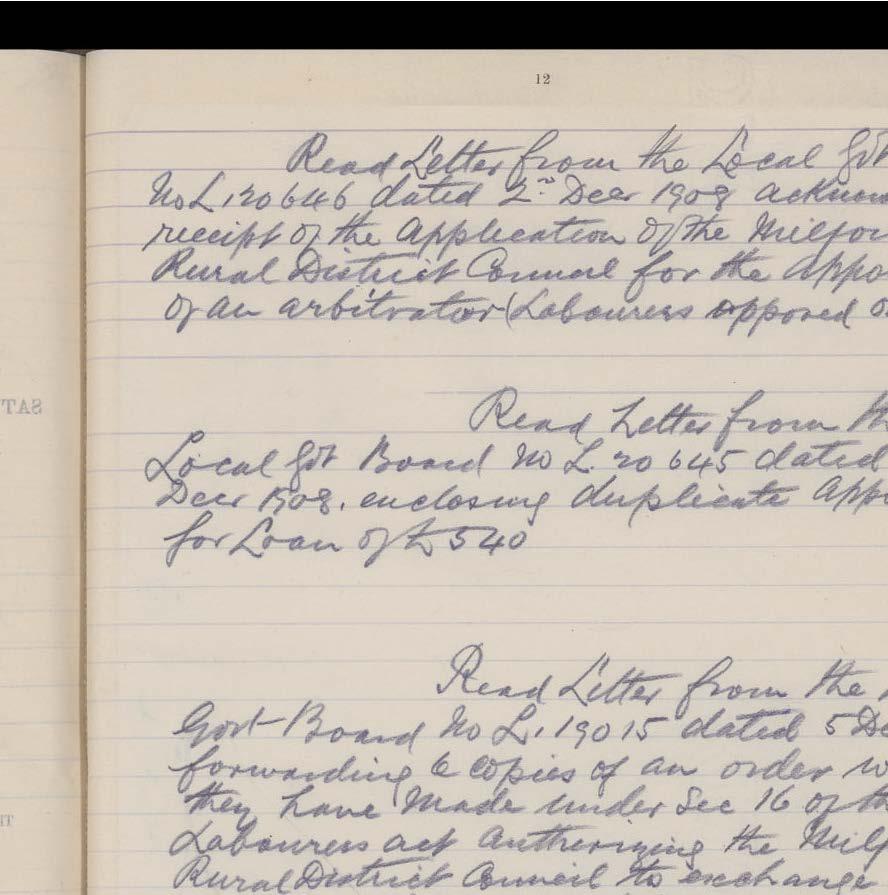 12
Read Letter from the Local Gvt
No L. 20646 dated 2nd Decr 1908 acknow
receipt of the Application of the Milfor
Rural District Council for the Appo
of an arbitrator (Labourers opposed o
Read Letter from th
Local Gvt Board No L. 20645 dated
Decr 1908. enclosing duplicate App
for Loan of £540
Read Letter from the
Govt Board No L. 19015 dated 5 De
forwarding 6 copies of an order w
they have made under Sec 16 of th
Labourers act authorizing the Milf
Rural District Council to exchange